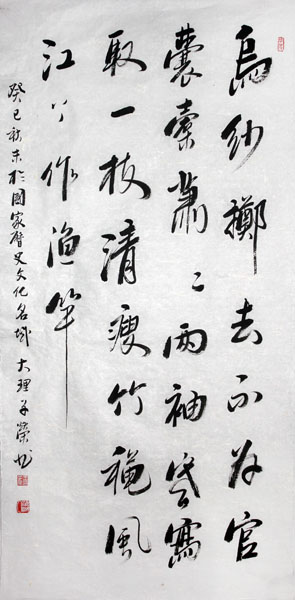 烏紗擲去不为官
囊橐蕭〻兩袖寒寫
取一枝清瘦竹龝風
江上作渔竿
癸巳秋末於國家歷史文化名城大理